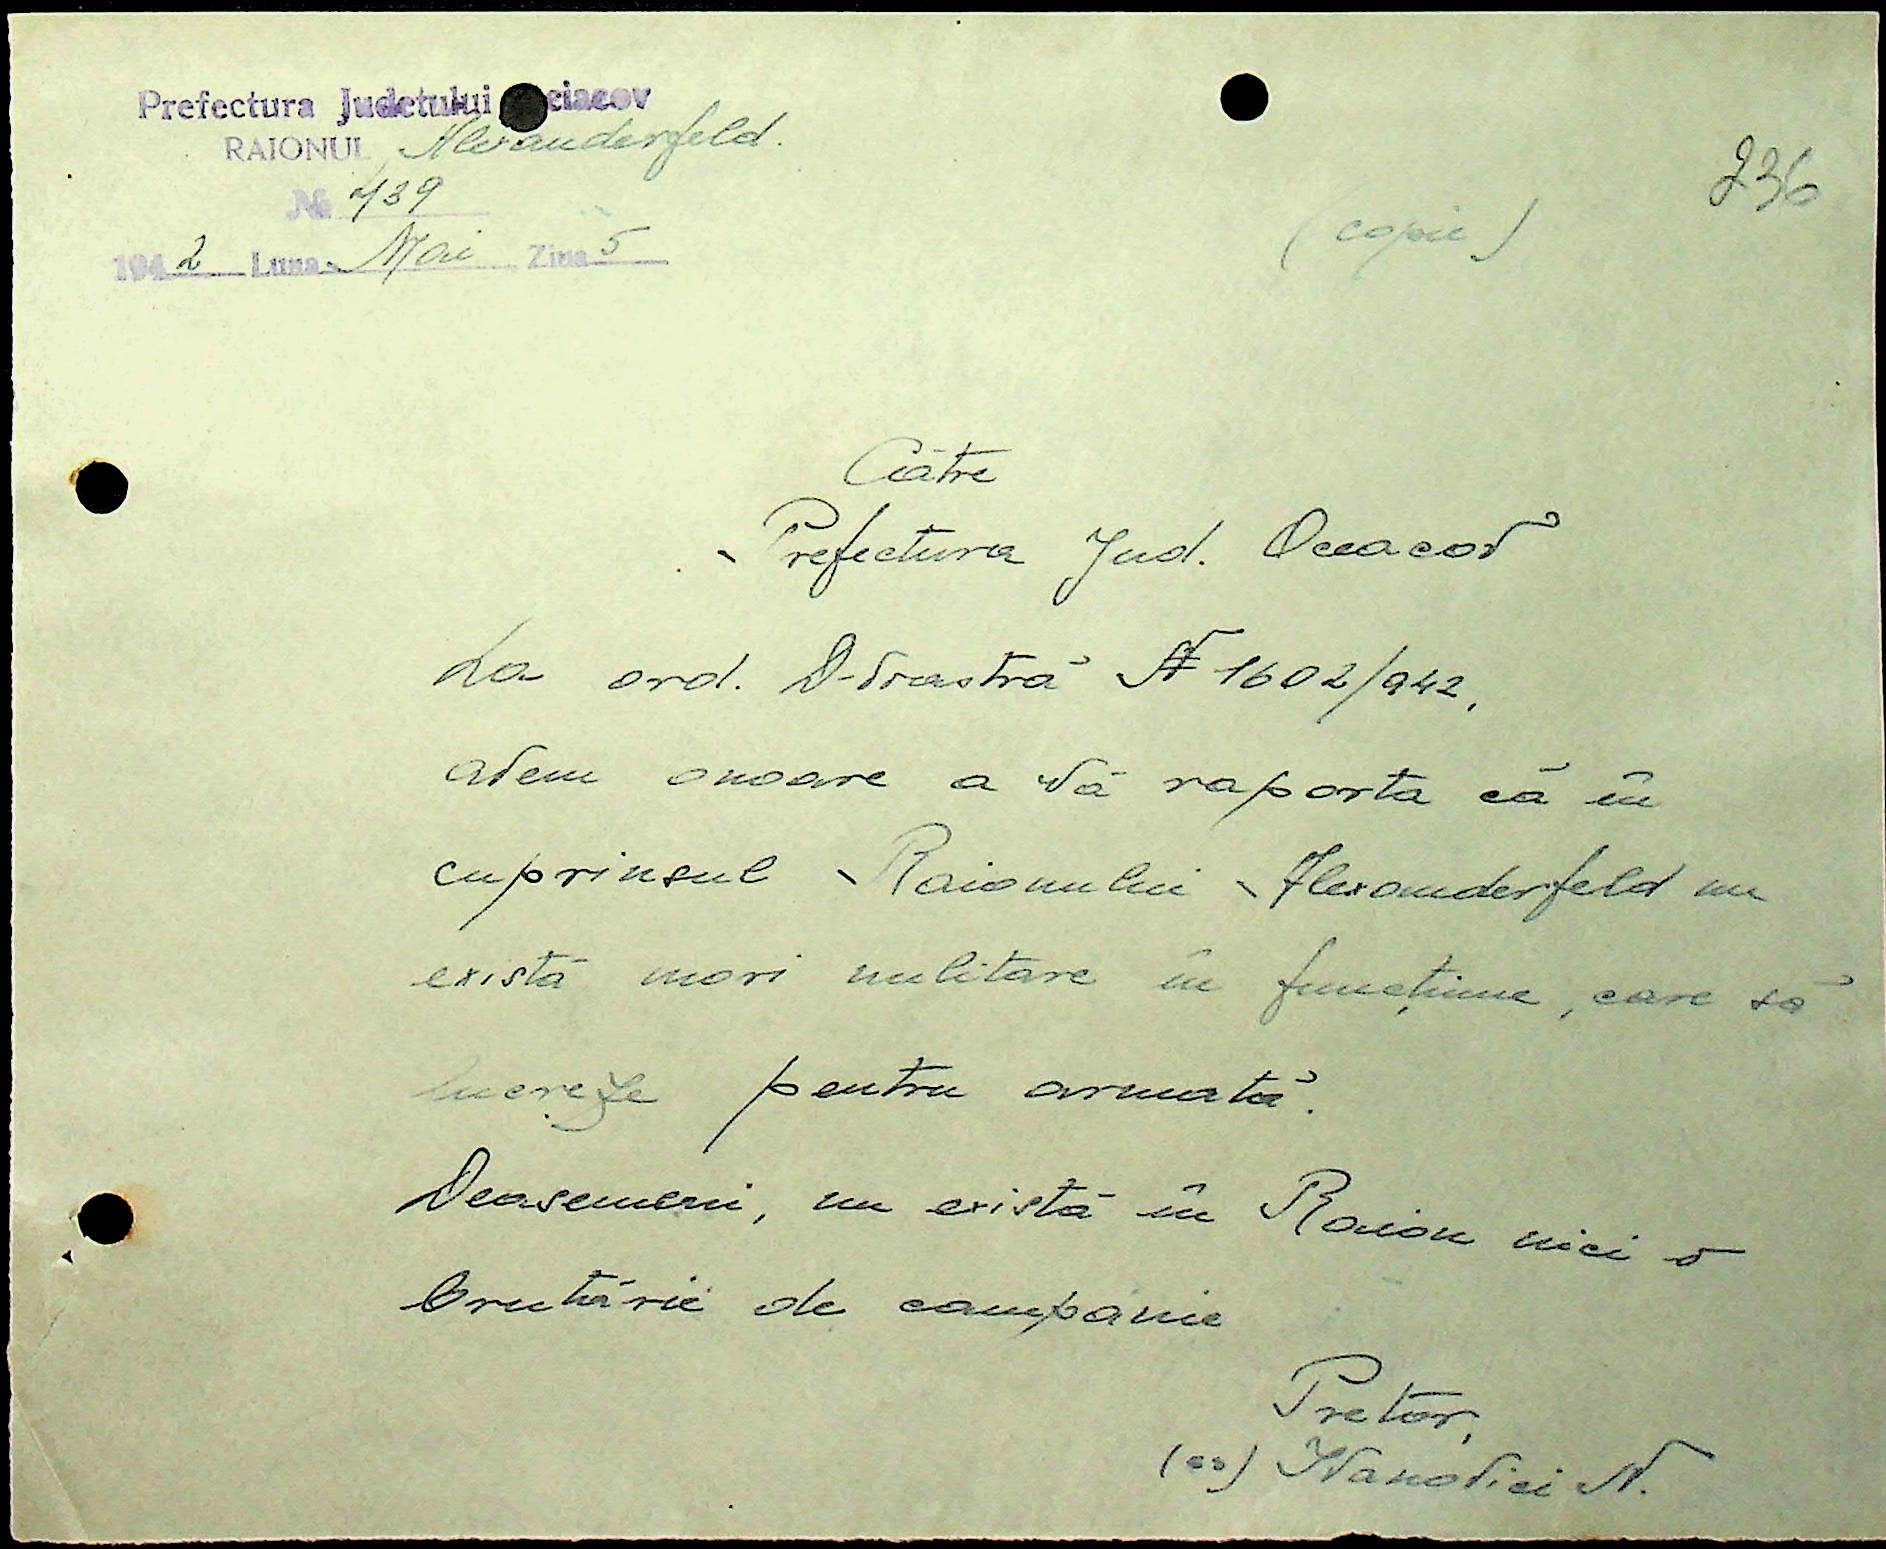 Prefectura Judetului Oceiacov
RAIONUL Alexanderfeld.
№ 439
1942 Luna Mai Ziua 5
236
(copie)
Către
Prefectura Jud. Oceacov
La ord. D-voastră № 1602/942,
avem onoare a vă raporta că în
cuprinsul Raionului Alexanderfeld nu
există mori militare în funcțiune, care să
lucreze pentru armată.
Deasemeni, nu există în Raion nici o
brutărie de campanie
Pretor,
(ss) Ivanovici N.